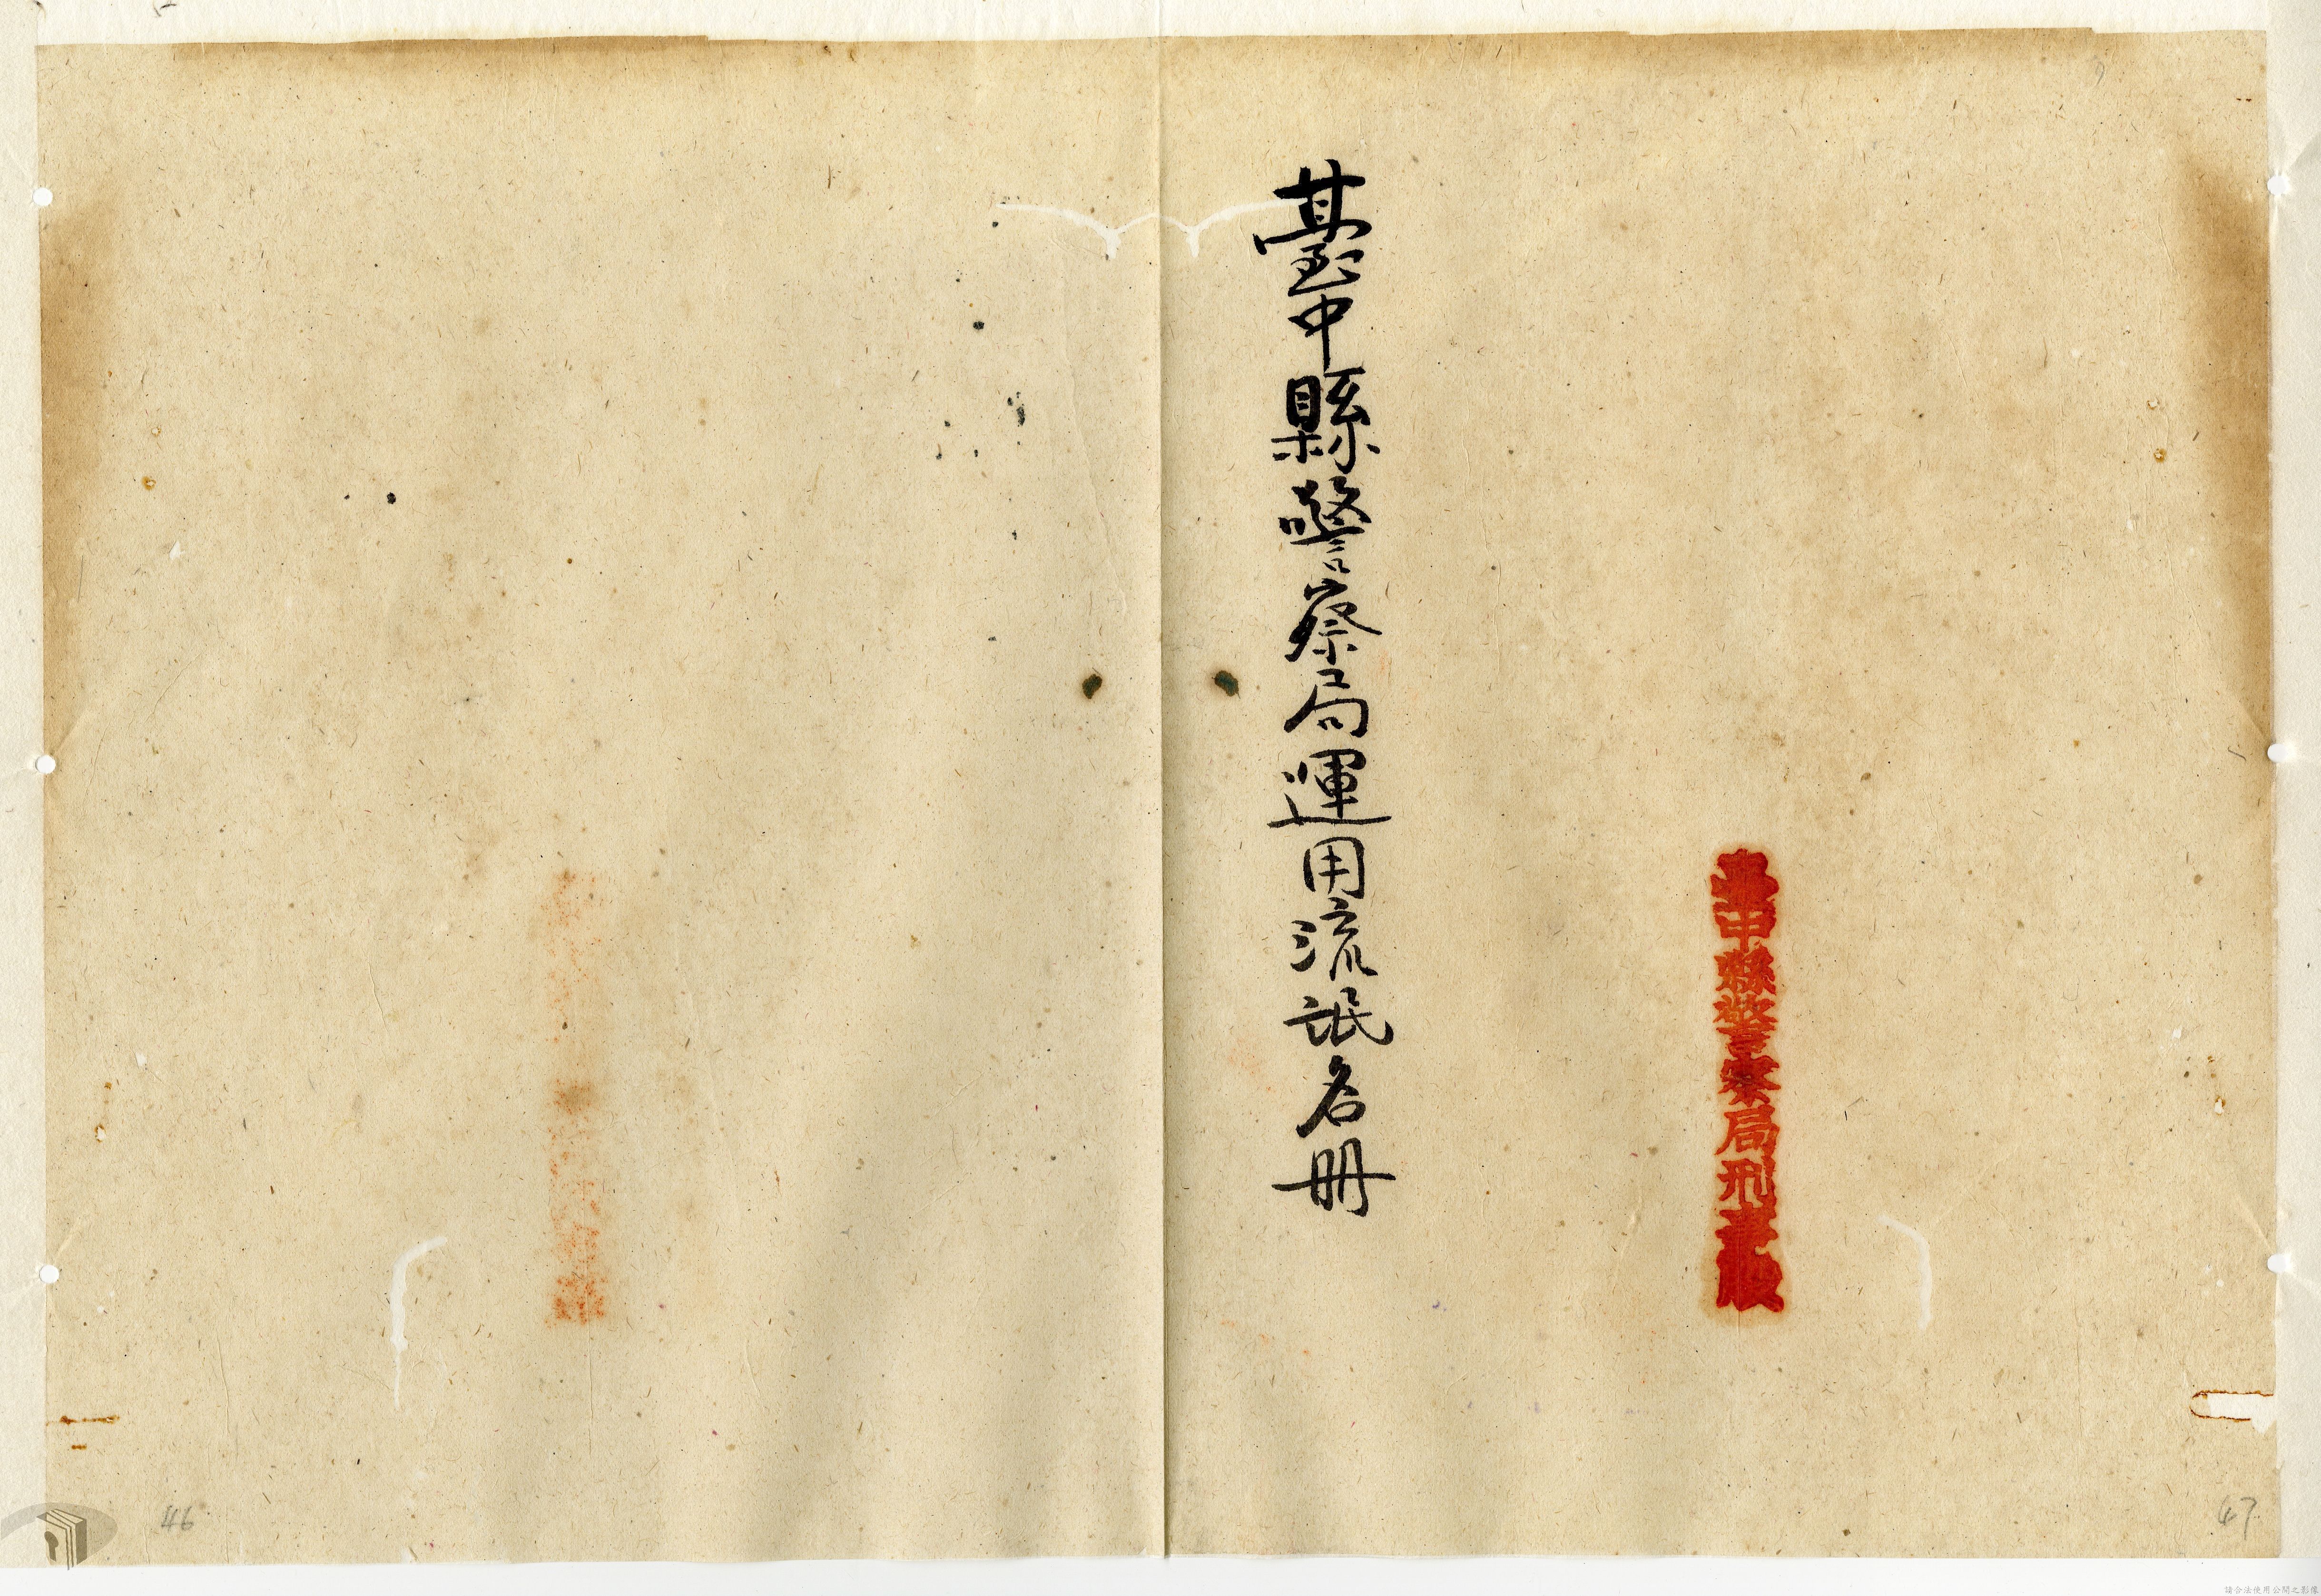 臺中縣警察局刑事股
臺中縣警察局運用流氓名冊
47
46
請合法使用公開之影像